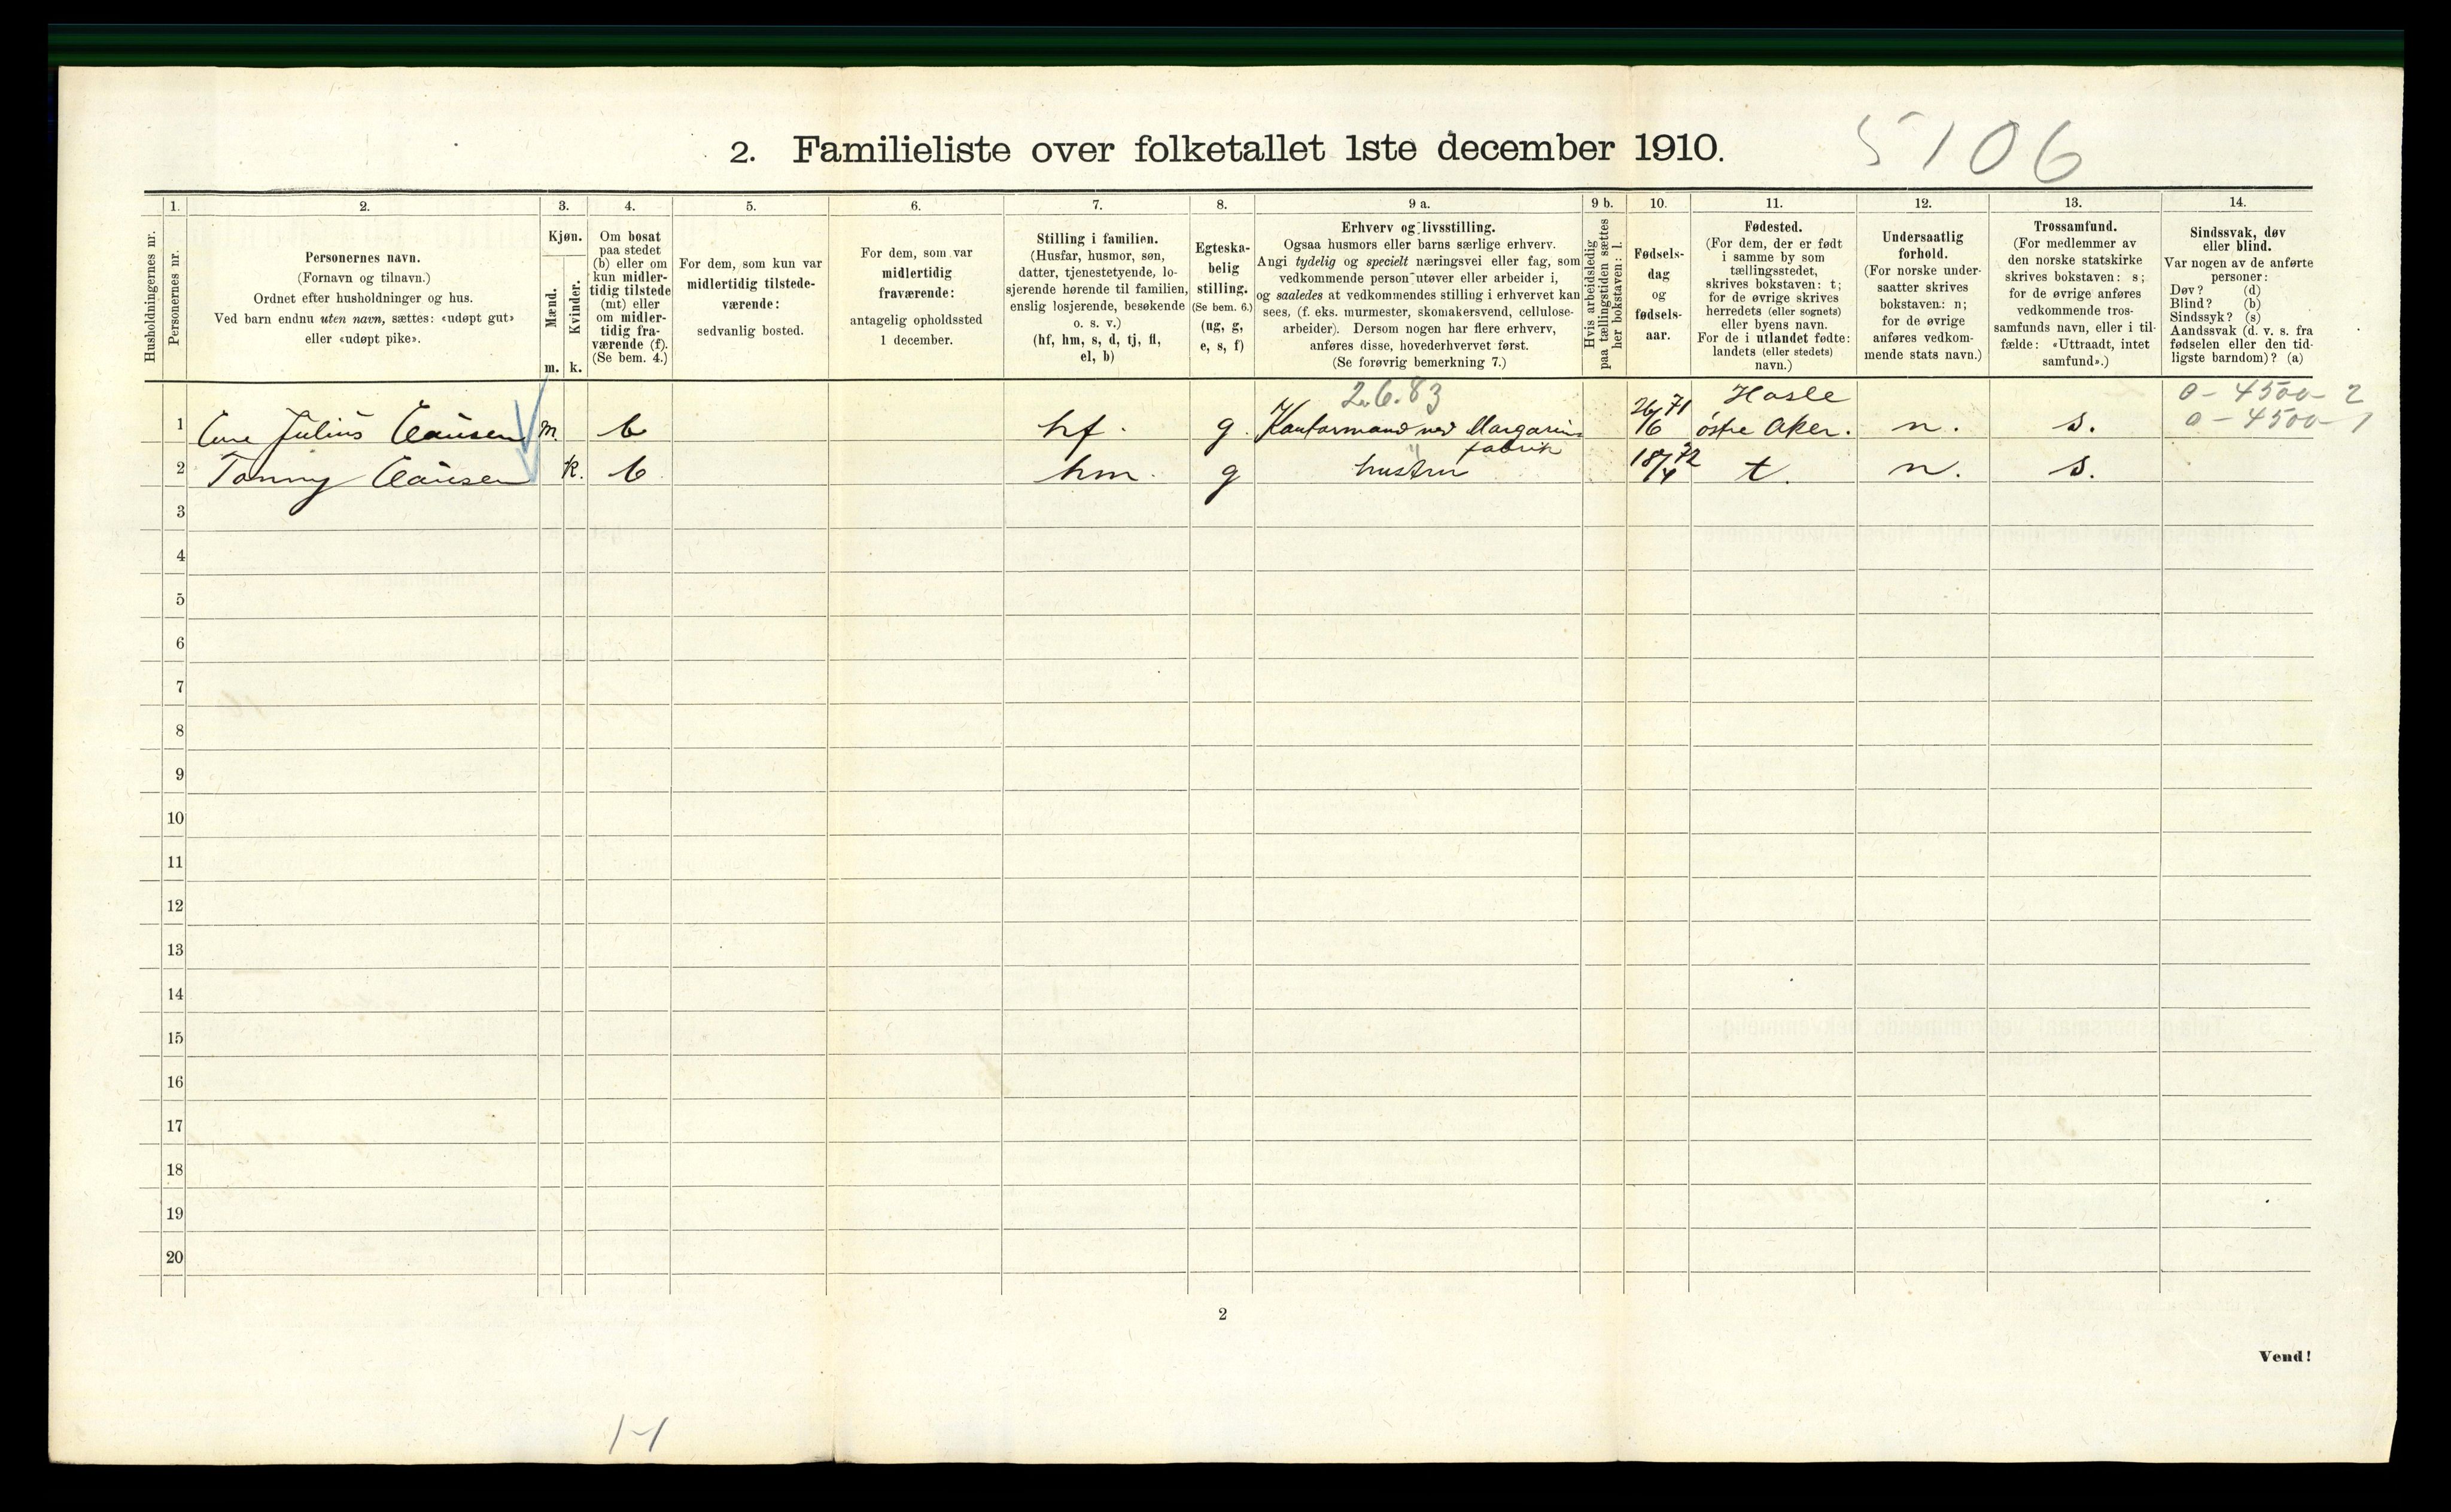 5106
2. Familieliste over folketallet 1ste december 1910.
1. 2. 3. 4. 5. 6. 7. 8. 9 a. 9 b. 10. 11. 12. 13. 14.
Husholdningernes nr.
Personernes nr.
Personernes navn.
(Fornavn og tilnavn.)
Ordnet efter husholdninger og hus.
Ved barn endnu uten navn, sættes: «udøpt gut»
eller «udøpt pike».
Kjøn.
Mænd.
Kvinder.
m. k.
Om bosat
paa stedet
(b) eller om
kun midler-
tidig tilstede
(mt) eller
om midler-
tidig fra-
værende (f).
(Se bem. 4.)
For dem, som kun var
midlertidig tilstede-
værende:
sedvanlig bosted.
For dem, som var
midlertidig
fraværende:
antagelig opholdssted
1 december.
Stilling i familien.
(Husfar, husmor, søn,
datter, tjenestetyende, lo-
sjerende hørende til familien,
enslig losjerende, besøkende
o. s. v.)
(hf, hm, s, d, tj, fl,
el, b)
Egteska-
belig
stilling.
(Se bem. 6.)
(ug, g,
e, s, f)
Erhverv og livsstilling.
Ogsaa husmors eller barns særlige erhverv.
Angi tydelig og specielt næringsvei eller fag, som
vedkommende person utøver eller arbeider i,
og saaledes at vedkommendes stilling i erhvervet kan
sees, (f. eks. murmester, skomakersvend, cellulose-
arbeider). Dersom nogen har flere erhverv,
anføres disse, hovederhvervet først.
(Se forøvrig bemerkning 7.)
Hvis arbeidsledig
paa tællingstiden sættes
her bokstaven: l.
Fødsels-
dag
og
fødsels-
aar.
Fødested.
(For dem, der er født
i samme by som
tællingsstedet,
skrives bokstaven: t;
for de øvrige skrives
herredets (eller sognets)
eller byens navn.
For de i utlandet fødte:
landets (eller stedets)
navn.)
Undersaatlig
forhold.
(For norske under-
saatter skrives
bokstaven: n;
for de øvrige
anføres vedkom-
mende stats navn.)
Trossamfund.
(For medlemmer av
den norske statskirke
skrives bokstaven: s;
for de øvrige anføres
vedkommende tros-
samfunds navn, eller i til-
fælde: «Uttraadt, intet
samfund».)
Sindssvak, døv
eller blind.
Var nogen av de anførte
personer:
Døv? (d)
Blind? (b)
Sindssyk? (s)
Aandssvak (d. v. s. fra
fødselen eller den tid-
ligste barndom)? (a)
2.6.83 Hasle 0-4500-2
1 Julius Clausen m. b hf. g. Kontormand ved Margarin 26/6 71 østre Aker. n. s. 0-4500-1
fabrik
2 Clausen k. b hm. g hustru 18/4 72 t. n. s.
3
4
5
6
7
8
9
10
11
12
13
14
15
16
17
18
19
20
2
Vend!
14